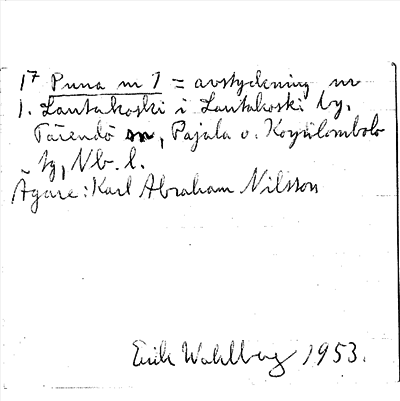 1⁷ Puna nr 1 = avstyckning nr
1. Lantakoski i Lantakoski by,
Tärendö sn, Pajala o. Korpilombolo
tg, Nb. l.
Ägare: Karl Abraham Nilsson
Erik Wahlberg 1953.